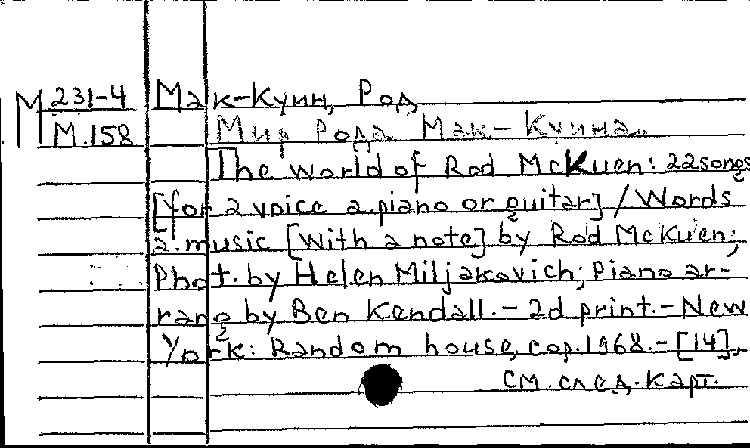 М 231-4 Мак-Куин, Род
М.158 Мир Рода Мак-Куина.
The world of Rod McKuen: 22 songs
[for a voice a. piano or guitar] / Words
a. music [with a note] by Rod McKuen;
Phot. by Helen Miljakovich; Piano ar-
rang by Ben Kendall. - 2d print. - New
York: Random house, cop. 1968. - [14],
см. след. карт.